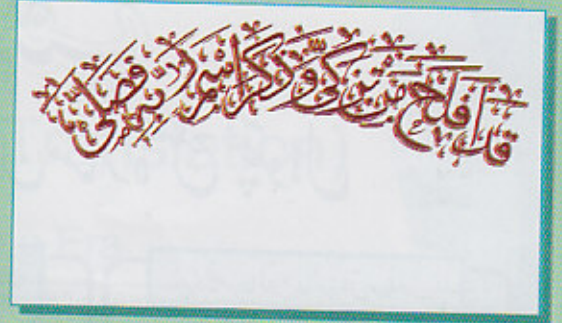 قد افلح من تزكى وذكر اسم ربه فصلى